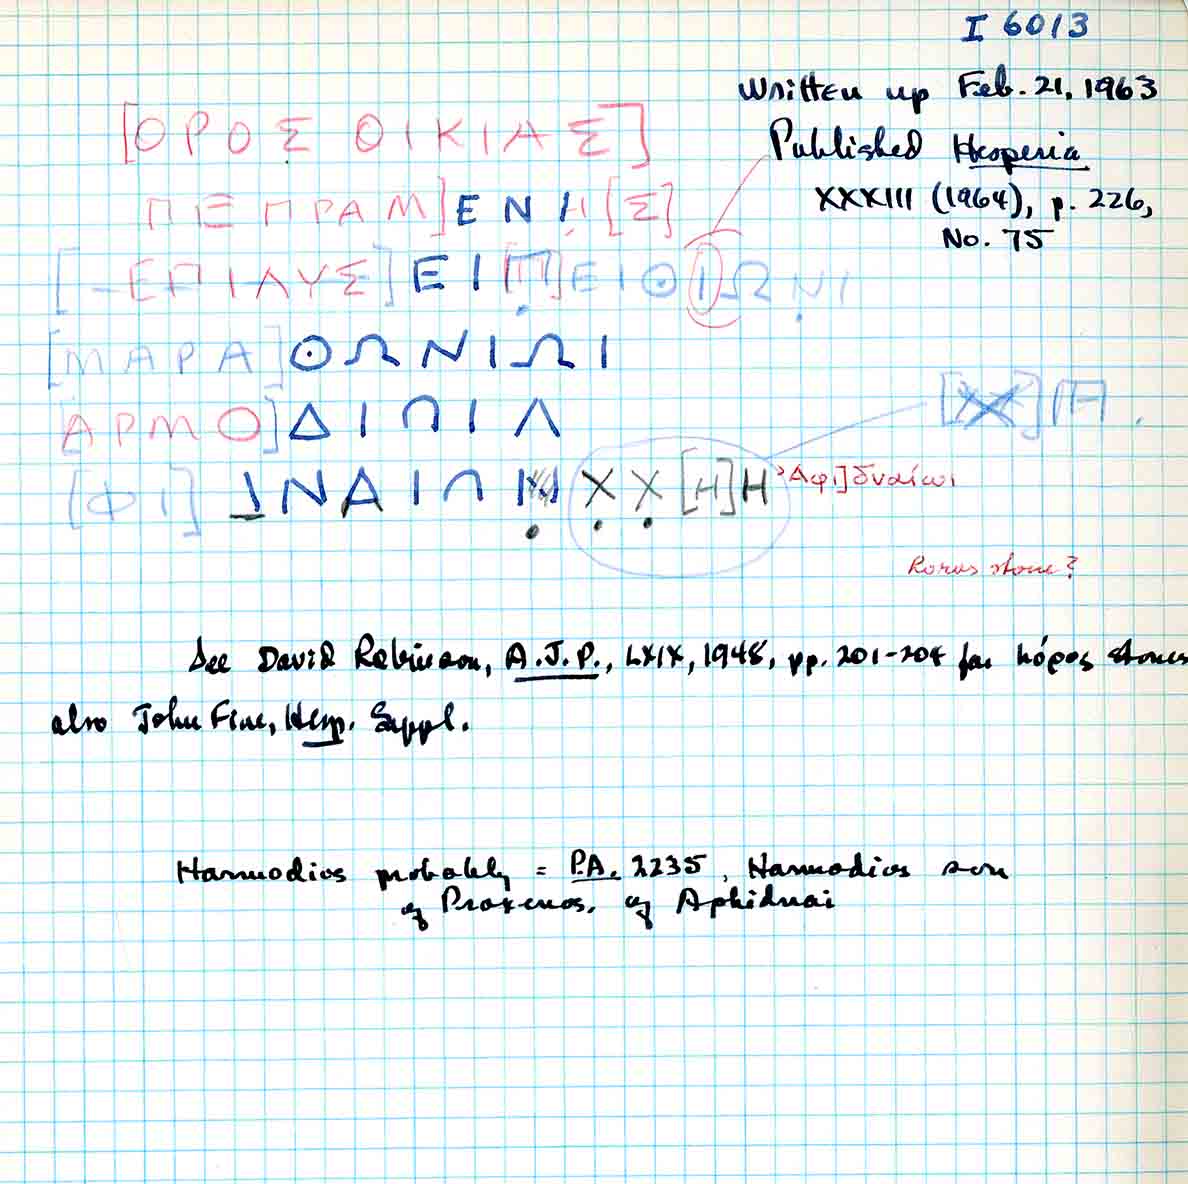 I 6013
Written up Feb. 21, 1963
Published Hesperia
XXXIII (1964), p. 226,
No. 75
[ΟΡΟΣ ΟΙΚΙΑΣ]
ΠΕΠΡΑΜ]ΕΝΗ[Σ]
[-ΕΠΙΛΥΣ]ΕΙ[Π]ΕΙΘΙΩΝΙ
[ΜΑΡΑ]ΘΩΝΙΩΙ
[ΑΡΜΟ]ΔΙΩΙΛ
[ΦΙ]ΔΝΑΙΩΙ ΧΧ[Η]Η
[ΧΧ]𐅄.
Ἀφι]δναίωι
Horos stone?
See David Robinson, A.J.P., LXIX, 1948, pp. 201-204 for hόρος stones
also John Fine, Hesp. Suppl.
Harmodios probably = P.A. 2235, Harmodios son
of Proxenos, of Aphidnai